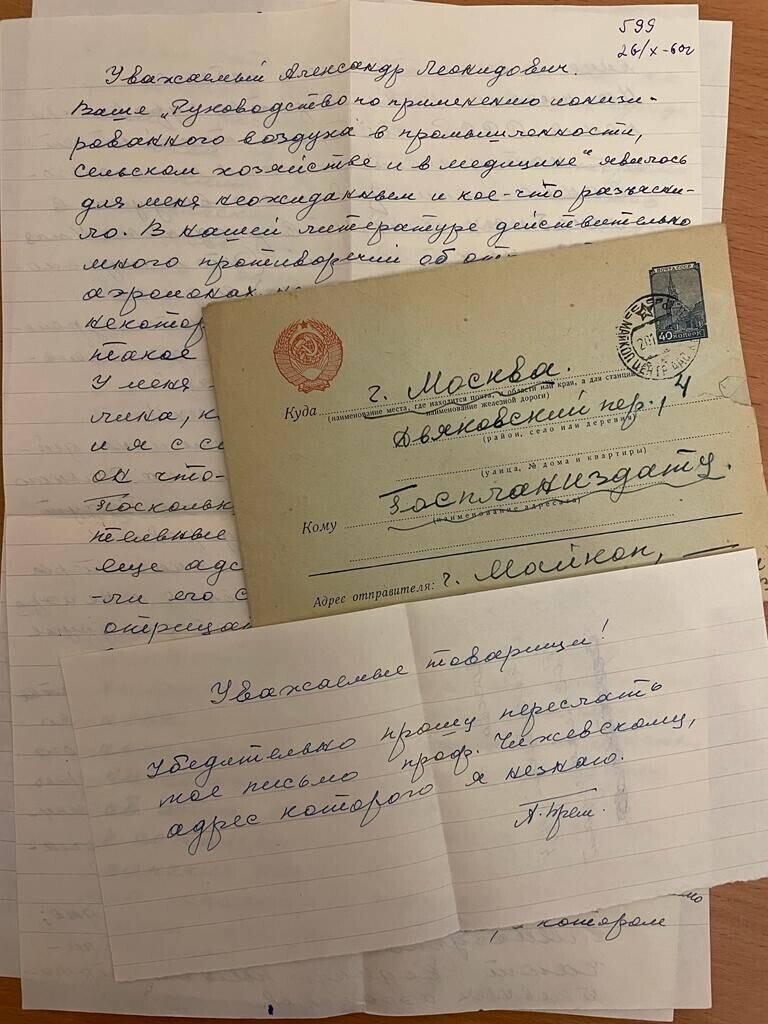 599
26/X-60г
Уважаемый Александр Леонидович.
Ваше „Руководство по применению ионизи-
рованного воздуха в промышленности,
сельском хозяйстве и в медицине" явилось
для меня неожиданным и кое-что разъясни-
ло. В нашей литературе действительно
много противоречий об
аэроионах.
некотор
такое
У меня
чина, к
и я с
он что-
Посколь
тельные
еще адс
-ли его с
отрицат
ПОЧТА СССР
40 КОПЕЕК
МАЙКОП ЦЕНТР
Куда г. Москва.
(наименование места, где находится почта, и области или края, а для станции
наименование железной дороги)
Дьяковский пер., 4
(район, село или деревня)
(улица, № дома и квартиры)
Кому Госпланиздату.
(наименование адресата)
Адрес отправителя: г. Майкоп,
Уважаемые товарищи!
Убедительно прошу переслать
мое письмо проф. Чижевскому,
адрес которого я незнаю.
А.
котором